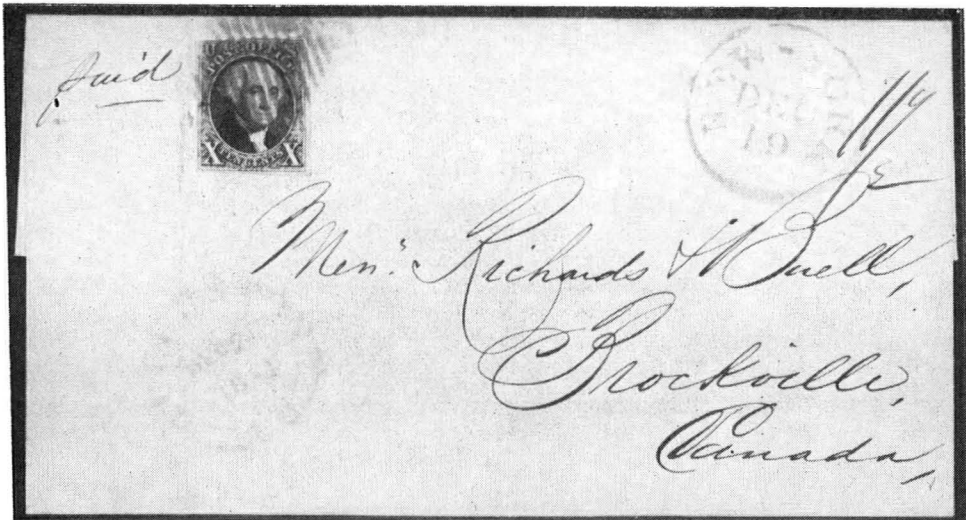 Paid
POST OFFICE
X X
TEN CENTS
NEW-YORK
DEC
19
Richards & Buell,
Brockville,
Canada,